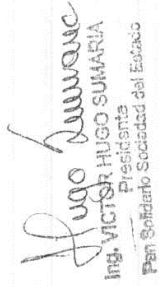 Hugo Sumaria
Ing. VICTOR HUGO SUMARIA
Presidente
Pan Solidario Sociedad del Estado